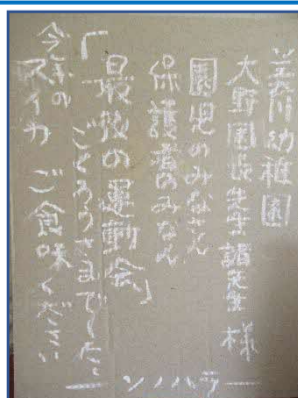 笠川幼稚園
大野園長先生 諸先生 様
園児のみなさん
保護者のみなさん
「最後の運動会」
ごくろうさまでした。
今年の
スイカ ご食味ください